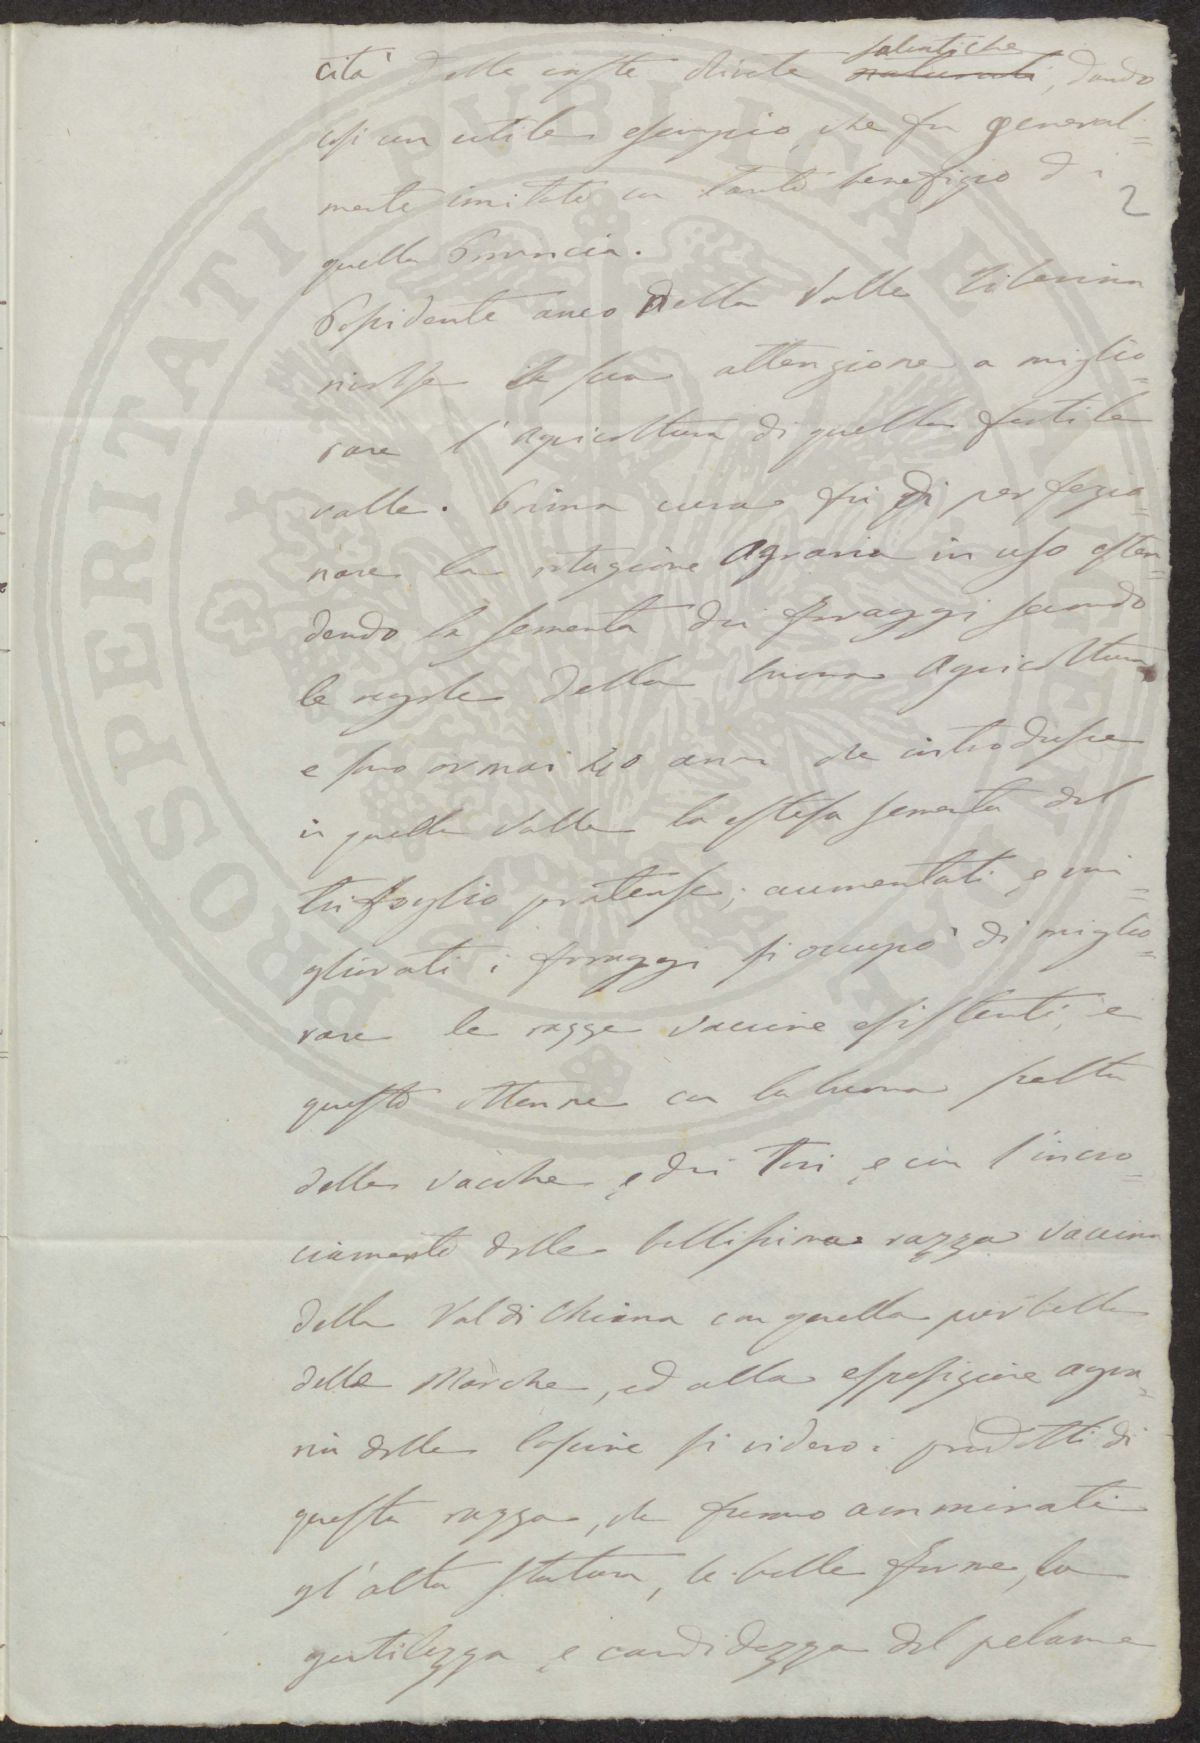 cità delle vaste olivete ~~naturali~~ salentiche, dando
così un utile esempio, che fu general=
mente imitato con tanto benefizio di
quella Provincia.
Possidente anco della Valle Tiberina
rivolse la sua attenzione a miglio=
rare l'agricoltura di quella fertile
valle. Prima cura fu di perfezio=
nare la rotazione Agraria in uso esten=
dendo la sementa dei foraggi secondo
le regole della buona agricoltura,
e sono ormai 40 anni che introdusse
in quella Valle la estesa sementa del
trifoglio pratense; aumentati, e mi=
gliorati i foraggi si occupò di miglio=
rare le razze vaccine esistenti, e
questo ottenne con la buona scelta
delle vacche, e dei Tori, e con l'incro=
ciamento della bellissima razza vaccina
della Val di Chiana con quella pur bella
delle Marche, ed alla esposizione agra=
ria delle Cascine si videro i prodotti di
questa razza, che furono ammirati
gl'alta statura, le belle forme, la
gentilezza, e candidezza del pelame
2
PROSPERITATI PVBLICAE AVGENDAE